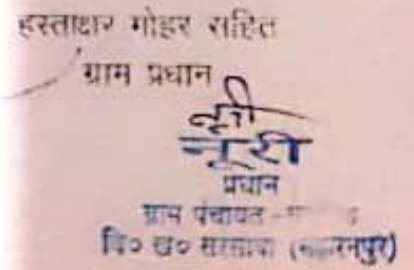 हस्ताक्षर मोहर सहित
ग्राम प्रधान
नूरी
नूरी
प्रधान
ग्राम पंचायत
वि० ख० सरसावा (सहारनपुर)